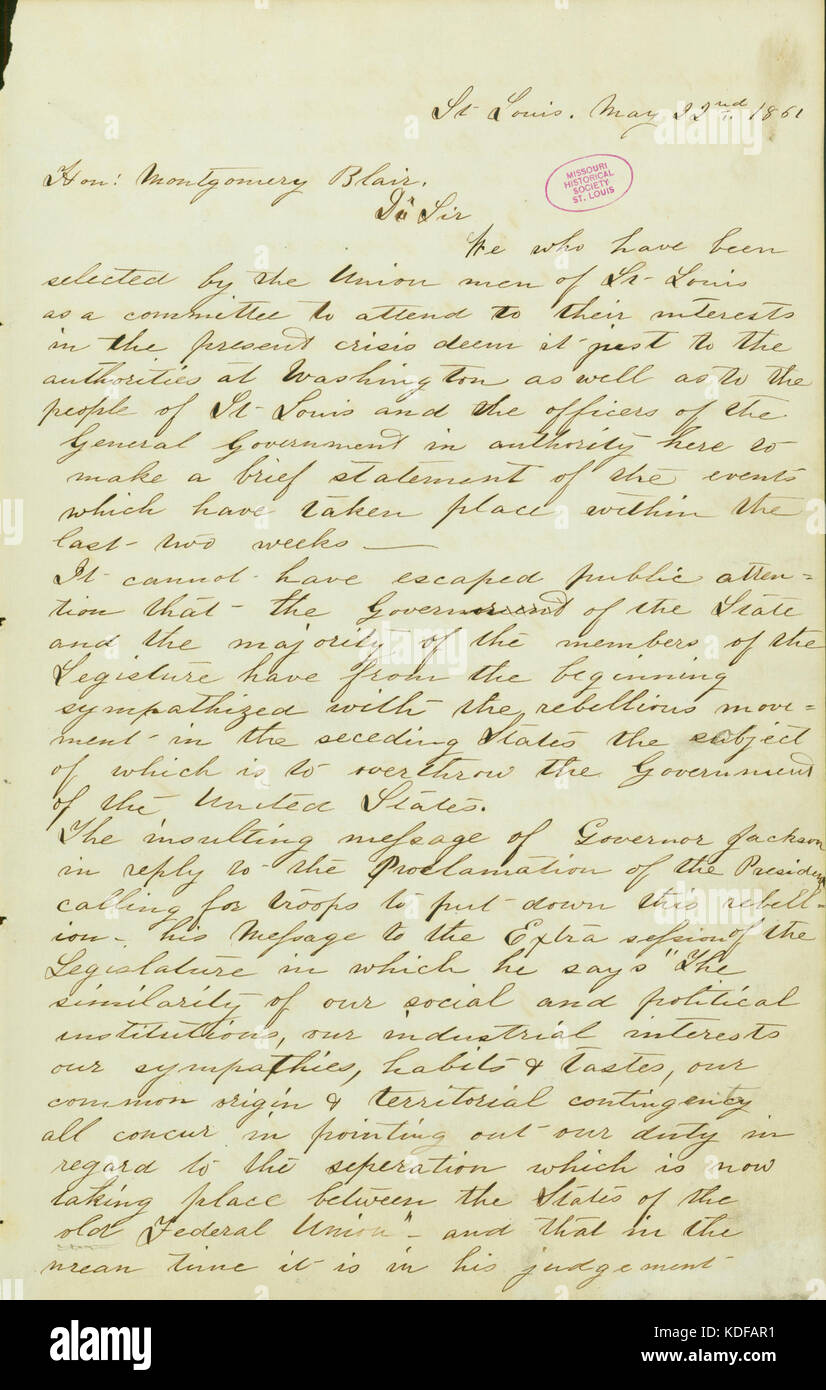 St Louis. May 22nd 1861
MISSOURI
HISTORICAL
SOCIETY
ST. LOUIS
Hon: Montgomery Blair.
Dr Sir
We who have been
selected by the Union men of St Louis
as a committee to attend to their interests
in the present crisis deem it just to the
authorities at Washington as well as to the
people of St Louis and the officers of the
General Government in authority here to
make a brief statement of the events
which have taken place within the
last two weeks —
It cannot have escaped public atten=
tion that the Government of the State
and the majority of the members of the
Legisture have from the beginning
sympathized with the rebellious move=
ment in the seceding States the subject
of which is to overthrow the Government
of the United States.
The insulting message of Governor Jackson
in reply to the Proclamation of the President
calling for troops to put down this rebell=
ion – his Message to the Extra session of the
Legislature in which he says "The
similarity of our social and political
institutions, our industrial interests
our sympathies, habits & tastes, our
common origin & territorial contingency
all concur in pointing out our duty in
regard to the seperation which is now
taking place between the States of the
old Federal Union" – and that in the
mean time it is in his judgement
alamy
Image ID: KDFAR1
www.alamy.com